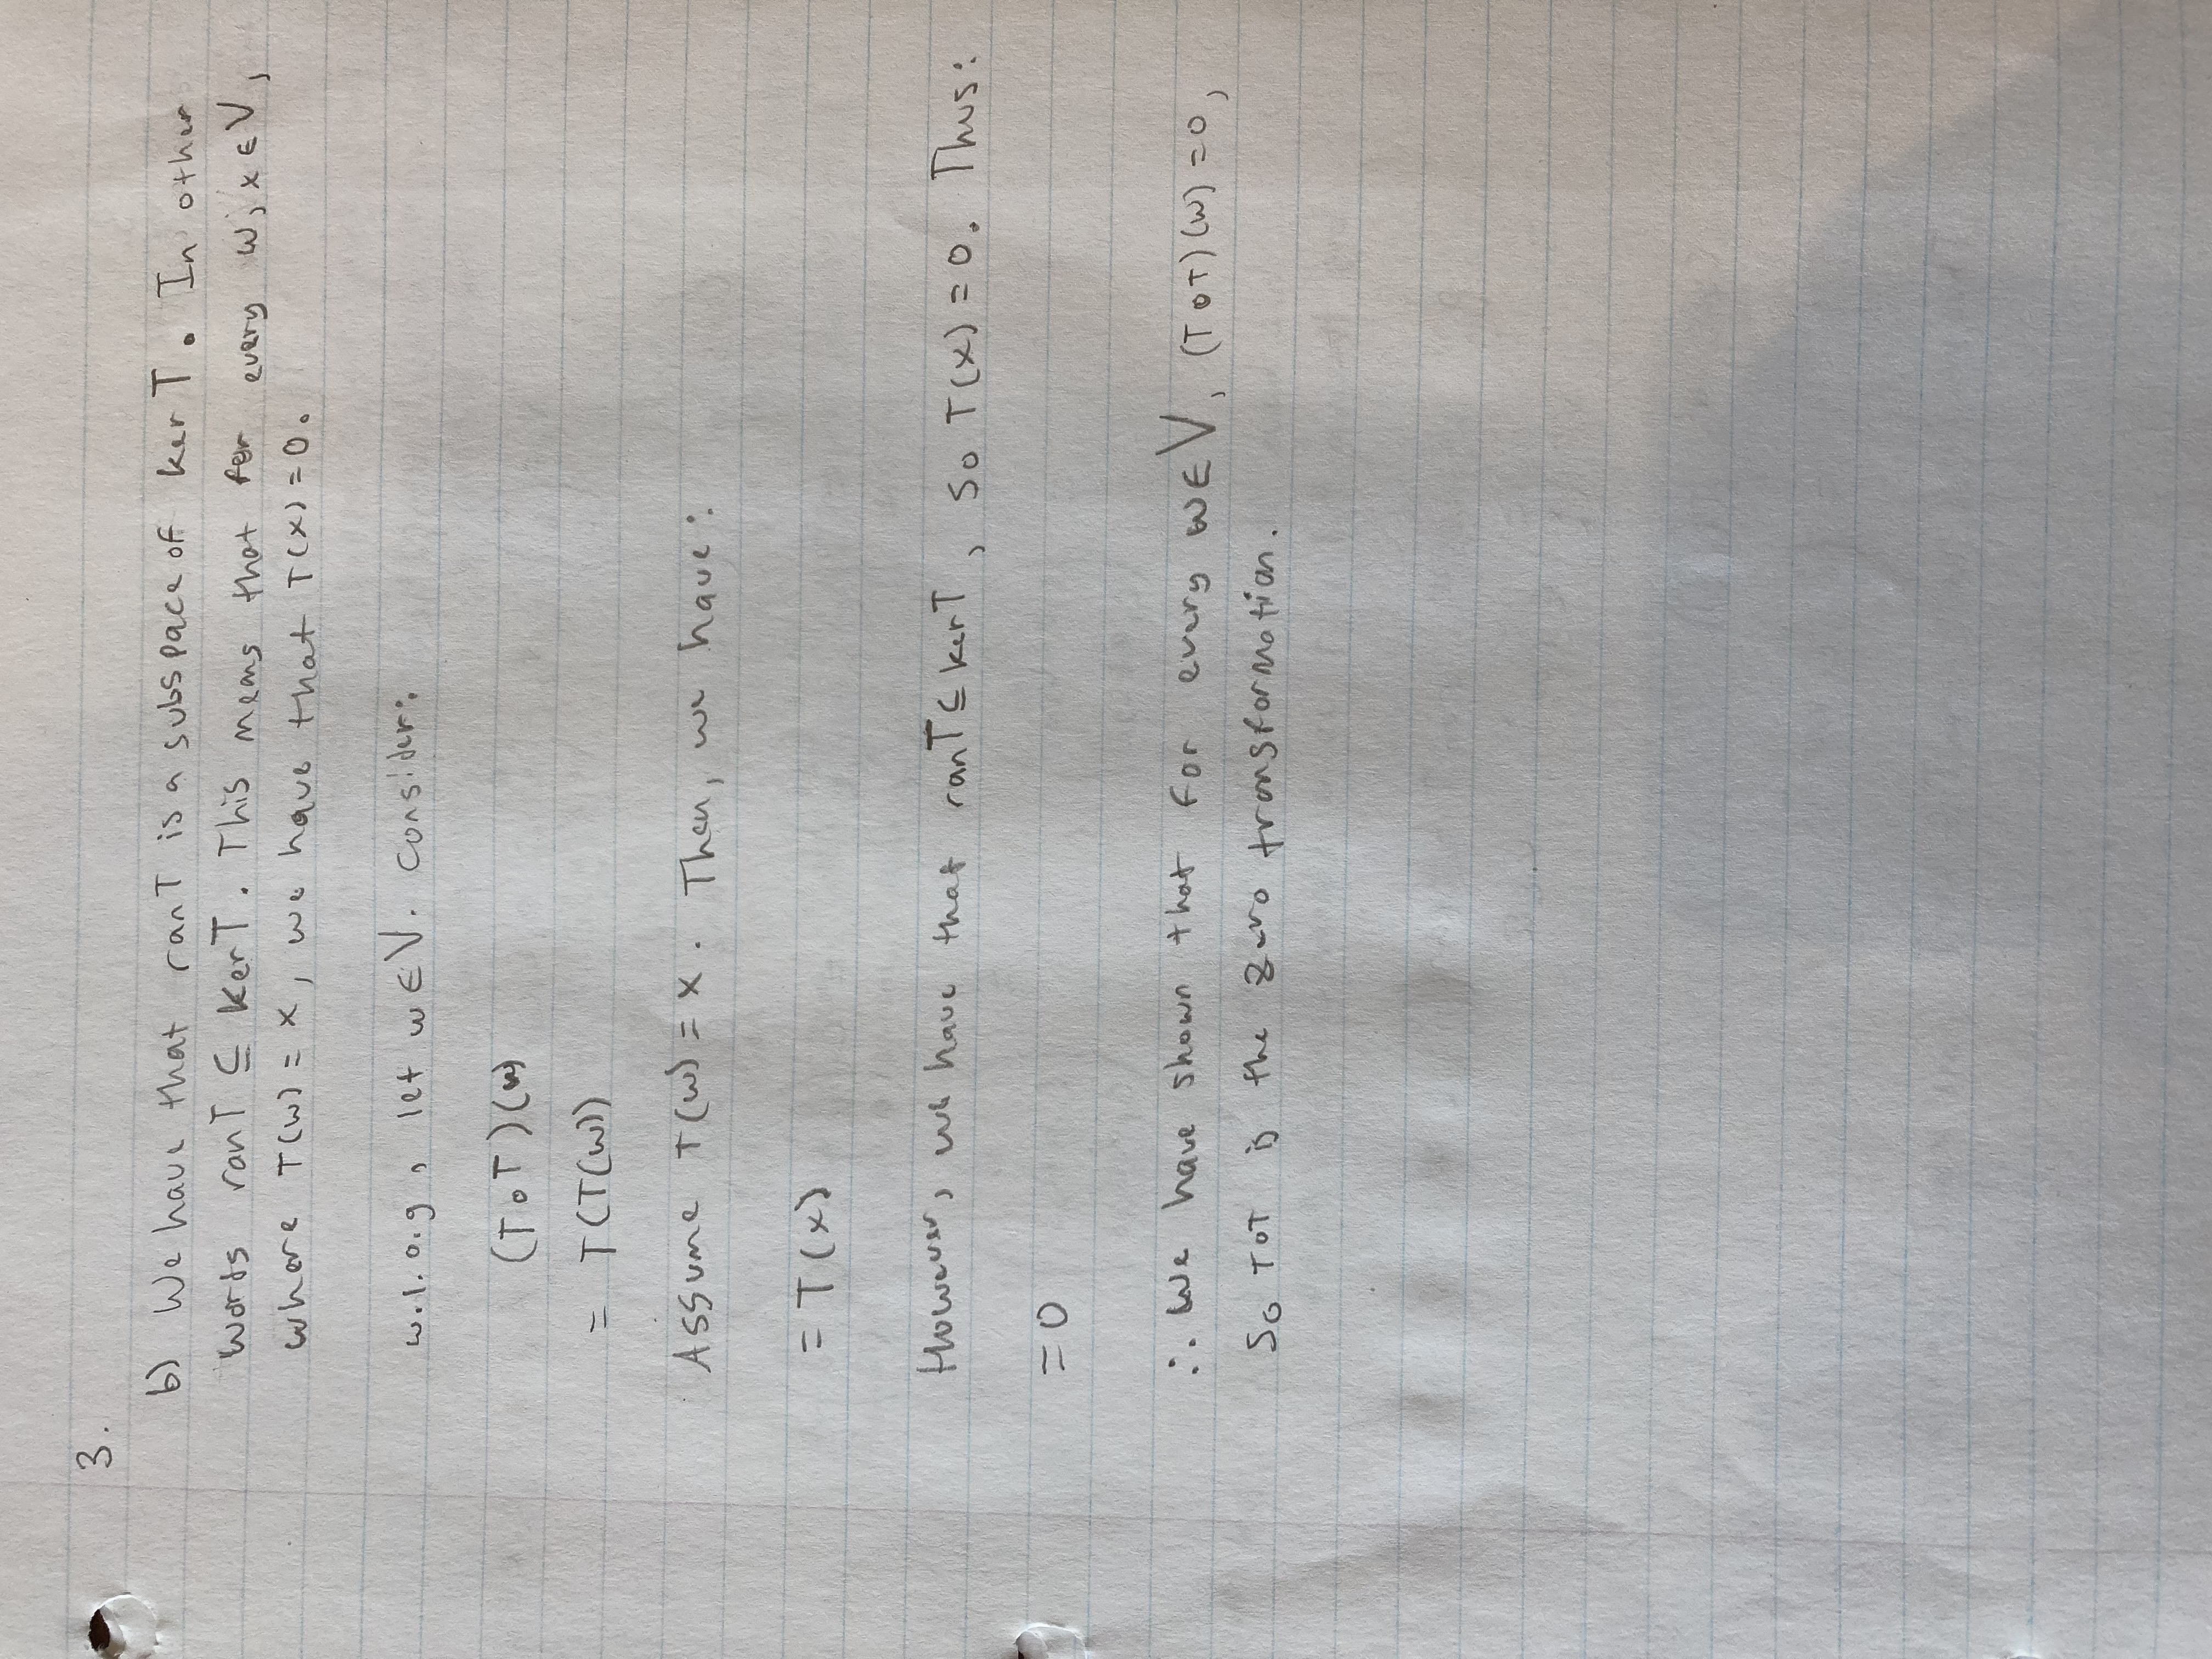 3.
b) We have that ranT is a subspace of ker T. In other
words ranT ⊆ KerT. This means that for every w, x ∈ V,
where T(w) = x, we have that T(x) = 0.
w.l.o.g, let w ∈ V. Consider:
(T∘T)(w)
= T(T(w))
Assume T(w) = x. Then, we have:
= T(x)
However, we have that ranT ⊆ kerT, so T(x) = 0. Thus:
= 0
∴ We have shown that for every w ∈ V, (T∘T)(w) = 0,
So T∘T is the zero transformation.